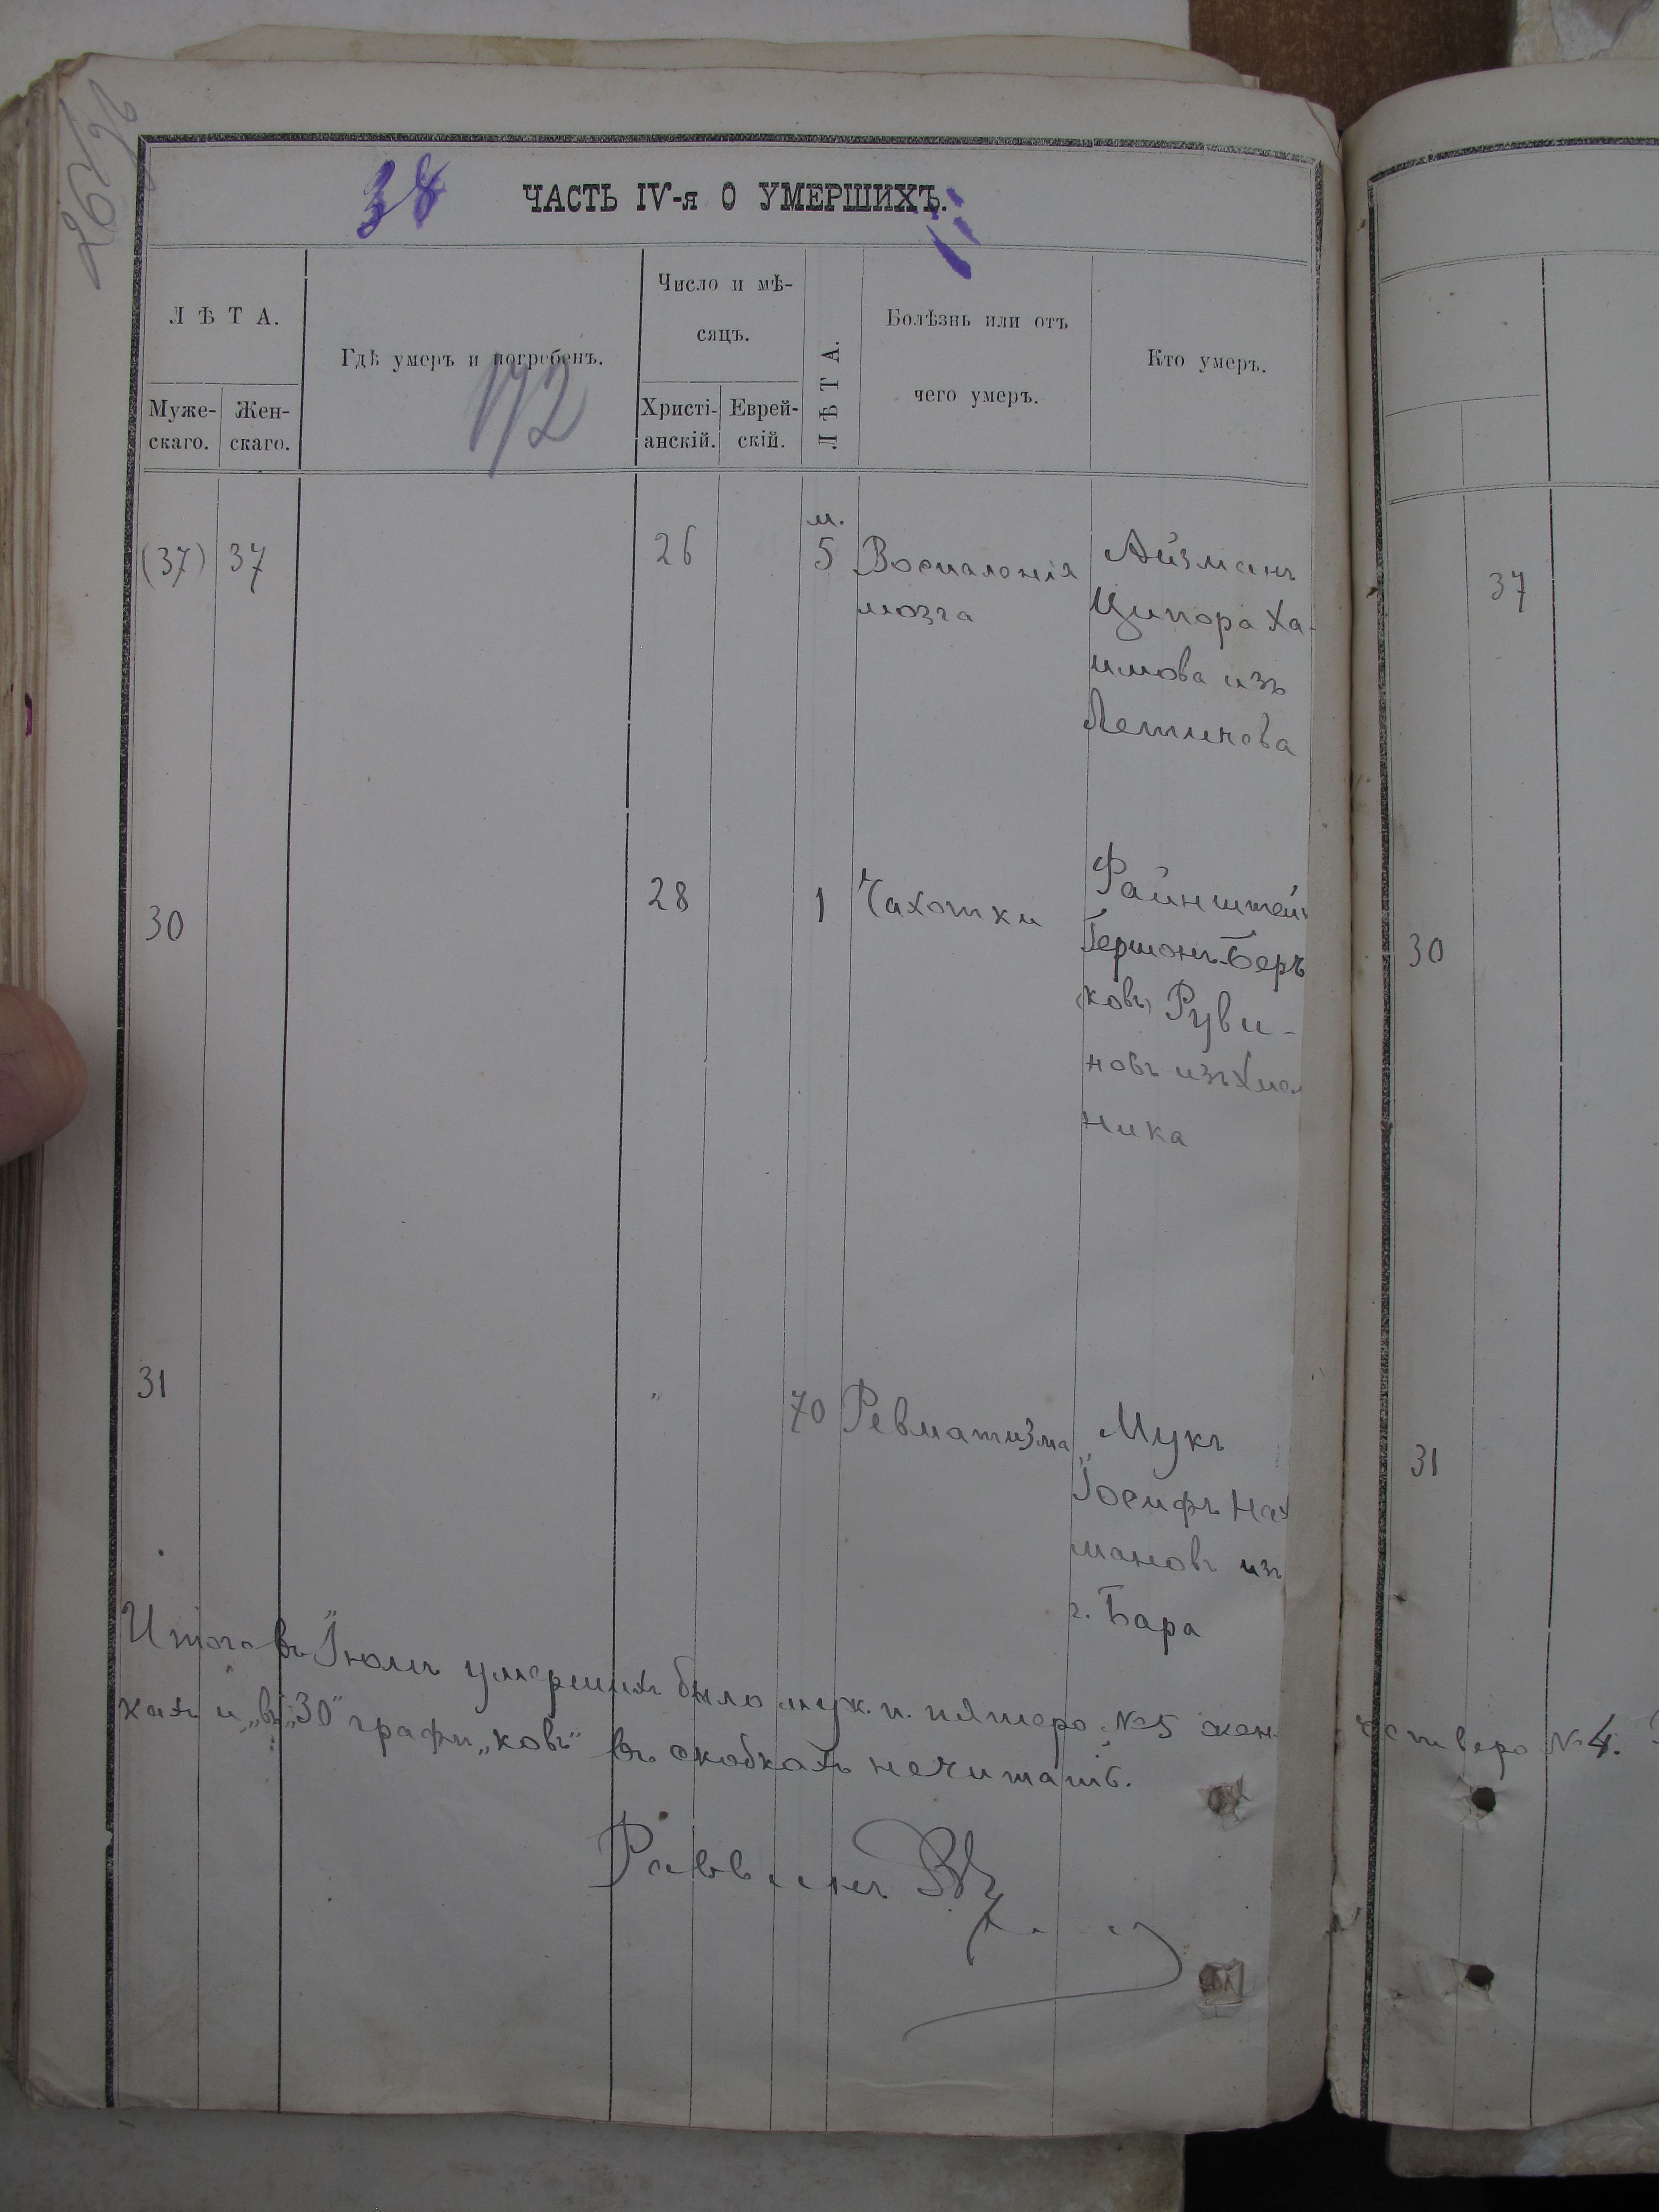 38 ЧАСТЬ IV-я О УМЕРШИХЪ.
ЛѢТА.
Муже-
скаго.
Жен-
скаго.
Гдѣ умеръ и погребенъ.
172
Число и мѣ-
сяцъ.
Христі-
анскій.
Еврей-
скій.
ЛѢТА.
Болѣзнь или отъ
чего умеръ.
Кто умеръ.
(37) 37 26 м. 5 Воспаленія
мозга
Айзманъ
Ципора Ха-
имова изъ
Летичева
37
30 28 1 Чахотки
Файнштейн
Гершонъ-Беръ
(ковъ) Руви-
новъ изъ Хмел
ника
30
31 " 70 Ревматизма
Мукъ
Іосифъ Нах
мановъ изъ
г. Бара
31
Итого въ Іюлѣ умершихъ было муж. п. пятеро №5 жен. четверо №4.
кахъ и „въ „30" графи „ковъ" въ скобкахъ нечитать.
Раввинъ